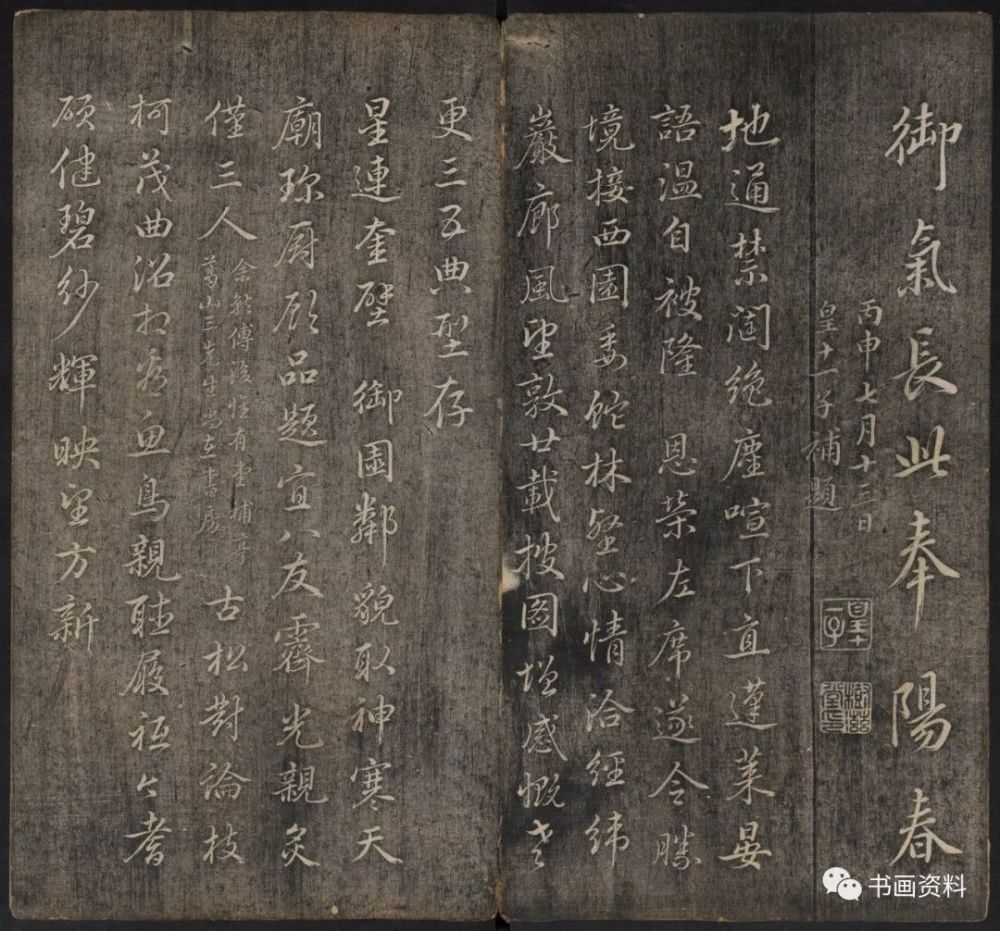 御氣長此奉陽春
丙申七月十三日
皇十一子補題
皇十一子
地通禁闥絶塵喧下直蓬萊晏
語温自被隆 恩榮左席遂令勝
境接西園委蛇林壑心情洽經緯
巖廊風望敦廿載披圖增感慨老
更三五典型存
星連奎壁 御園鄰貌取神寒天
廟珎厨顧品題宜八友霽光親炙
僅三人
惟有堂補亭
葛山三先生尚在書房
古松對論枝
柯茂曲沼相看魚鳥親聽履祗今耆
碩健碧紗輝映望方新
书画资料